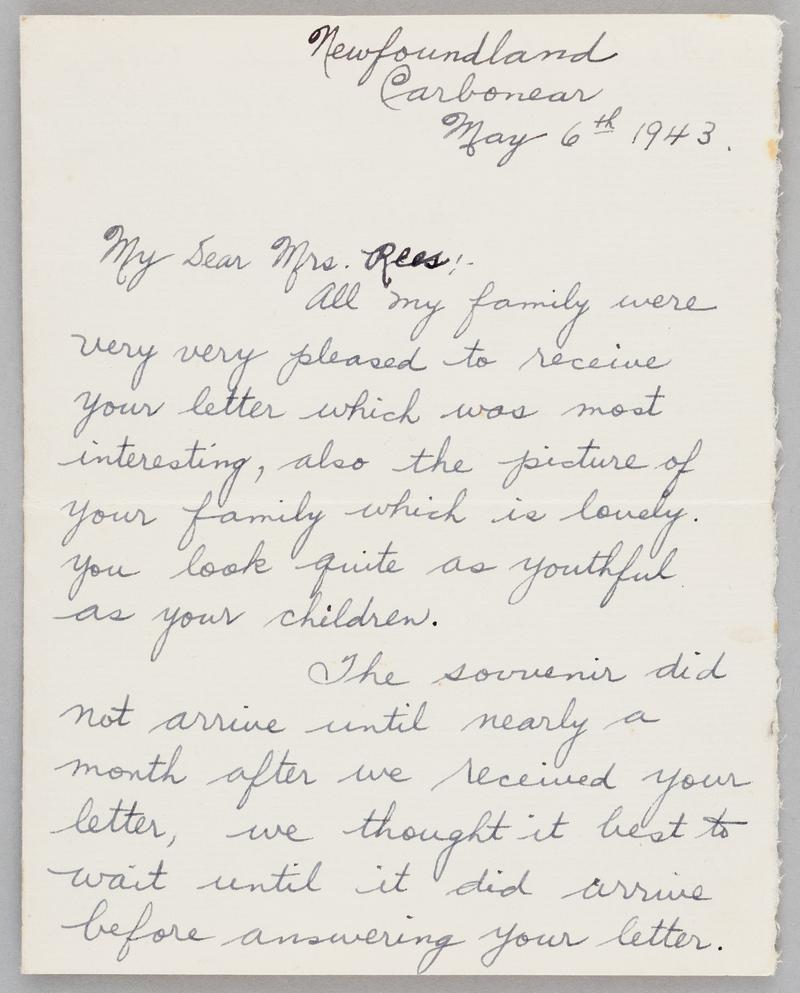 Newfoundland
Carbonear
May 6th 1943.
My Dear Mrs. Rees:-
All my family were
very very pleased to receive
your letter which was most
interesting, also the picture of
your family which is lovely.
You look quite as youthful
as your children.
The souvenir did
not arrive until nearly a
month after we received your
letter, we thought it best to
wait until it did arrive
before answering your letter.